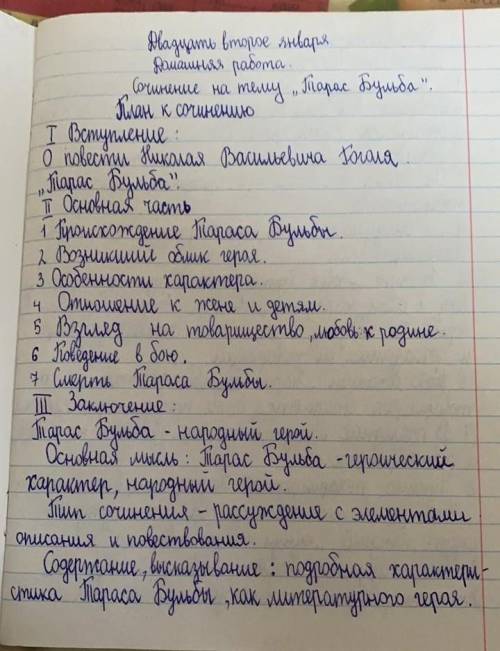 Двадцать второе января
Домашняя работа.
Сочинение на тему „Тарас Бульба".
План к сочинению
I Вступление:
О повести Николая Васильевича Гоголя
„Тарас Бульба".
II Основная часть
1 Происхождение Тараса Бульбы.
2 Возникший облик героя.
3 Особенности характера.
4 Отношение к жене и детям.
5 Взгляд на товарищество, любовь к родине.
6 Поведение в бою.
7 Смерть Тараса Бульбы.
III Заключение:
Тарас Бульба - народный герой.
Основная мысль: Тарас Бульба - героический
характер, народный герой.
Тип сочинения - рассуждение с элементами
описания и повествования.
Содержание, высказывание: подробная характери-
стика Тараса Бульбы, как литературного героя.